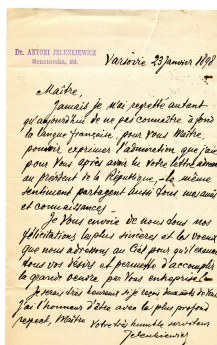 Dr. ANTONI JELENKIEWICZ
Senatorska, 22.
Varsovie 23 janvier 1898
Maître,
Jamais je n'ai regretté autant
qu'aujourd'hui de ne pas connaître à fond
la langue française, pour Vous, Maître,
pouvoir exprimer l'admiration que j'ai
pour Vous après avoir lu votre lettre
au Président de la République, – le même
sentiment partagent aussi tous mes amis
et connaissances. –
Je Vous envoie de nous tous nos
félicitations les plus sincères et les voeux
que nous adressons au Ciel pour qu'il exauce
tous vos désirs et permette d'accomplir
la grande oeuvre par Vous entreprise. –
Je serais très heureux si je reçois deux mots de Vous
J'ai l'honneur d'être avec le plus profond
respect, Maître
Votre très humble serviteur
Jelenkiewicz